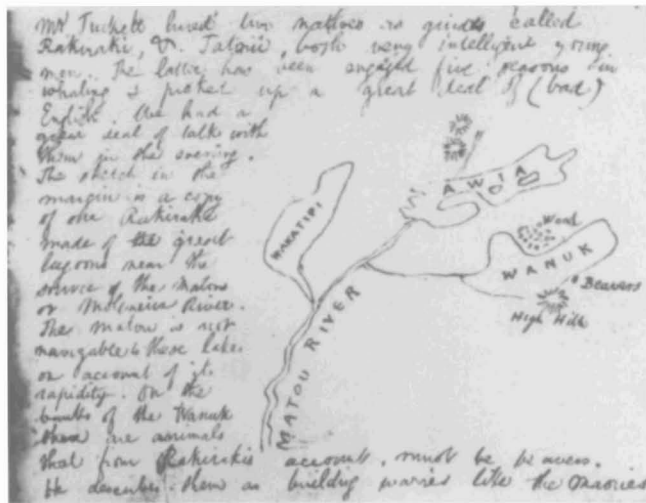 Mr Tuckett hired two natives as guides called
Rakiraki, & Tatoii, both very intelligent young
men. The latter has been engaged five seasons in
whaling & picked up a great deal of (bad)
English. We had a
great deal of talk with
them in the evening.
The sketch in the
margin is a copy
of one Rakiraki
made of the great
lagoons near the
source of the Matou
or Molyneux River.
The Matou is not
navigable to these lakes
on account of its
rapidity. On the
banks of the Wanuk
there are animals
that from Rakirakis account, must be beavers.
he describes them as building warries like the maories
WAKATIPI
AWIA
Wood
WANUK
Beavers
High Hills
MATOU RIVER